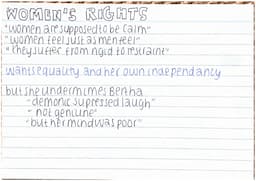 WOMEN'S RIGHTS
"women are supposed to be calm"
"women feel just as men feel"
"they suffer from rigid to restraint"
wants equality and her own independancy
but she undermines Bertha
"demonic supressed laugh"
"not genuine"
"but her mind was poor"